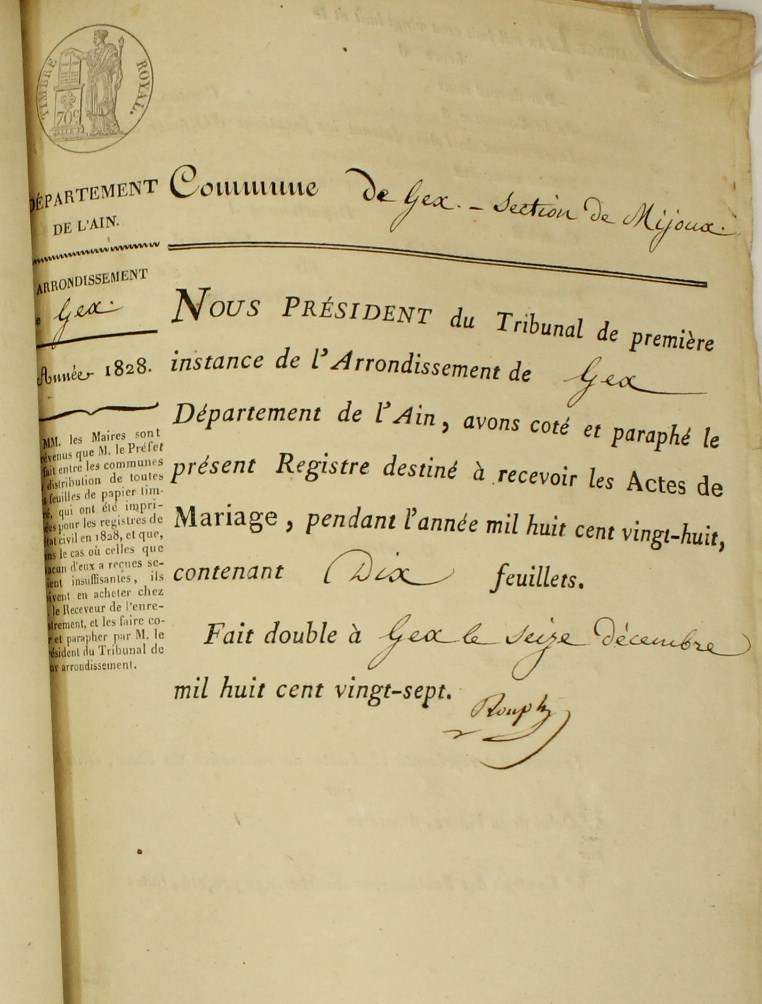 TIMBRE ROYAL.
70c
DÉPARTEMENT
DE L'AIN.
ARRONDISSEMENT
e Gex.
Année 1828.
MM. les Maires sont
évenus que M. le Préfet
fait entre les communes
distribution de toutes
feuilles de papier tim-
é, qui ont été impri-
ées pour les registres de
tat civil en 1828, et que,
ns le cas où celles que
acun d'eux a reçues se-
ient insuffisantes, ils
ivent en acheter chez
. le Receveur de l'enre-
trement, et les faire co-
r et parapher par M. le
ésident du Tribunal de
ur arrondissement.
Commune de Gex. - Section de Mijoux.
NOUS PRÉSIDENT du Tribunal de première
instance de l'Arrondissement de Gex
Département de l'Ain, avons coté et paraphé le
présent Registre destiné à recevoir les Actes de
Mariage, pendant l'année mil huit cent vingt-huit,
contenant Dix feuillets.
Fait double à Gex le Seize décembre
mil huit cent vingt-sept.